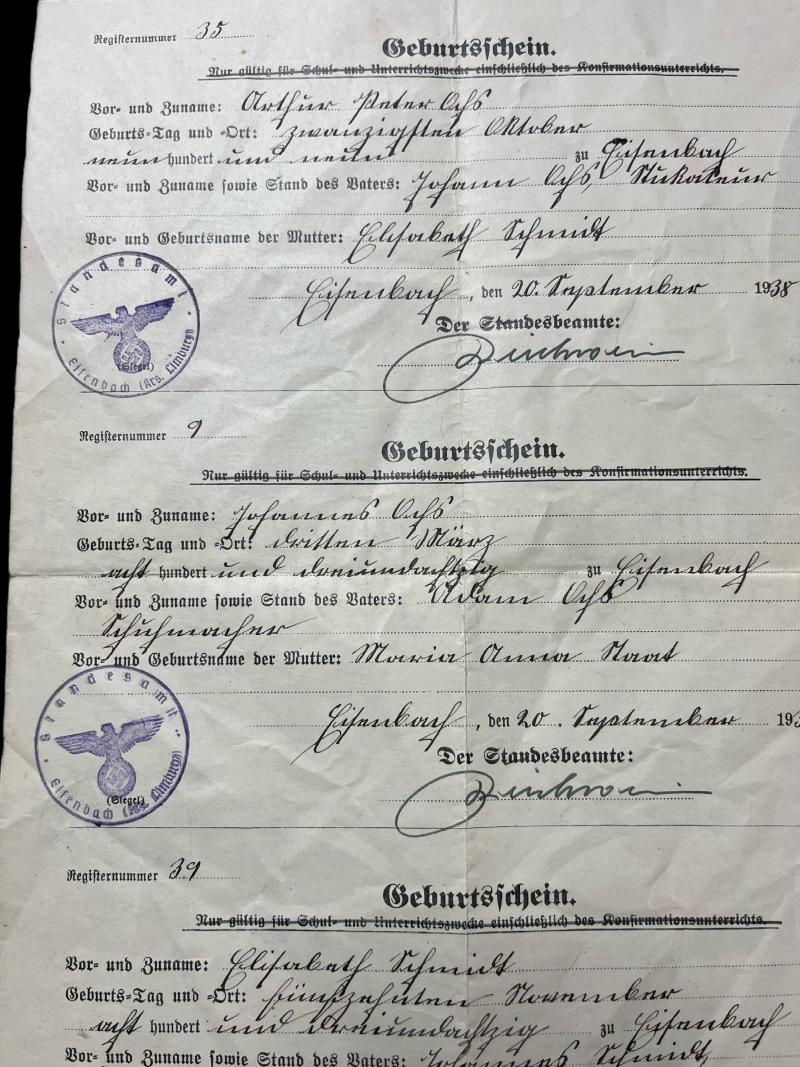 Registernummer 35
Geburtsschein.
Nur gültig für Schul- und Unterrichtszwecke einschließlich des Konfirmationsunterrichts.
Vor- und Zuname: Arthur Peter Ochs
Geburts-Tag und -Ort: zwanzigsten Oktober
neun hundert und neun zu Eisenbach
Vor- und Zuname sowie Stand des Vaters: Johann Ochs, Stukateur
Vor- und Geburtsname der Mutter: Elisabeth Schmidt
Eisenbach, den 20. September 1938
Der Standesbeamte:
Standesamt
Eisenbach (Krs. Limburg)
(Siegel)
Registernummer 9
Geburtsschein.
Nur gültig für Schul- und Unterrichtszwecke einschließlich des Konfirmationsunterrichts.
Vor- und Zuname: Johannes Ochs
Geburts-Tag und -Ort: dritten März
acht hundert und dreiundachtzig zu Eisenbach
Vor- und Zuname sowie Stand des Vaters: Adam Ochs
Schuhmacher
Vor- und Geburtsname der Mutter: Maria Anna Staat
Eisenbach, den 20. September 193
Der Standesbeamte:
Standesamt
Eisenbach (Krs. Limburg)
(Siegel)
Registernummer 39
Geburtsschein.
Nur gültig für Schul- und Unterrichtszwecke einschließlich des Konfirmationsunterrichts.
Vor- und Zuname: Elisabeth Schmidt
Geburts-Tag und -Ort: fünfzehnten November
acht hundert und dreiundachtzig zu Eisenbach
Vor- und Zuname sowie Stand des Vaters: Johannes Schmidt,